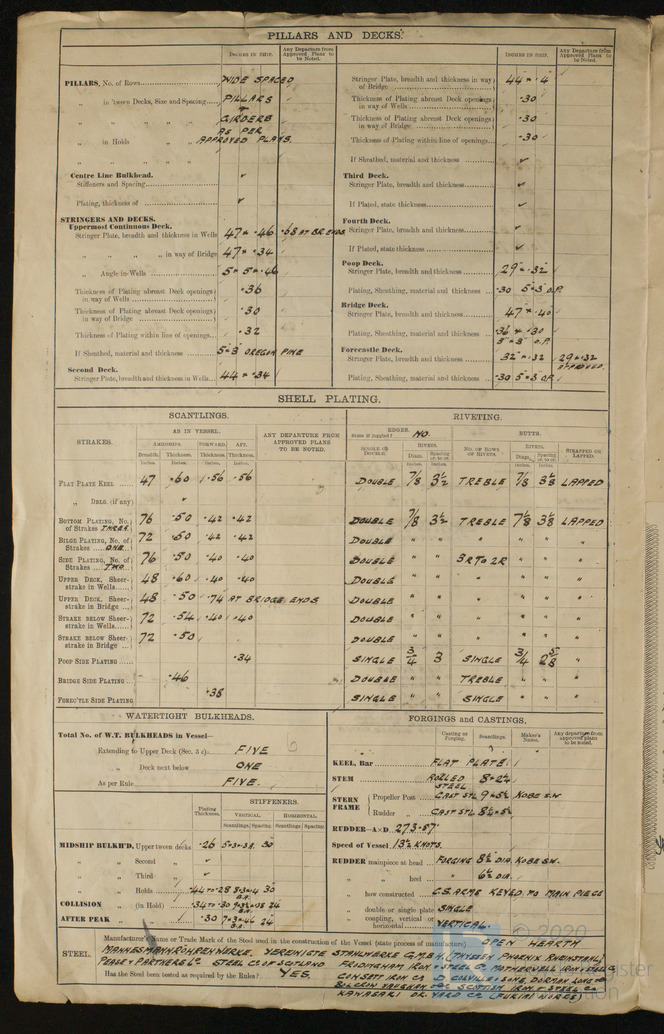 PILLARS AND DECKS.
INCHES IN SHIP.
Any Departure from Approved Plans to be Noted.
PILLARS, No. of Rows WIDE SPACED
„ in 'tween Decks, Size and Spacing PILLARS
„ „ „ „ GIRDERS
AS PER
„ in Holds „ APPROVED PLANS.
„ „ „
Centre Line Bulkhead.
Stiffeners and Spacing ✓
Plating, thickness of ✓
STRINGERS AND DECKS.
Uppermost Continuous Deck.
Stringer Plate, breadth and thickness in Wells 47 × .46 .68 AT BR. ENDS
„ „ „ „ in way of Bridge 47 × .34
„ Angle in Wells 5 × 5 × .46
Thickness of Plating abreast Deck openings in way of Wells .36
Thickness of Plating abreast Deck openings in way of Bridge .30
Thickness of Plating within line of openings .32
If Sheathed, material and thickness 5 × 3 OREGON PINE
Second Deck.
Stringer Plate, breadth and thickness in Wells 44 × .34
INCHES IN SHIP.
Any Departure from Approved Plans to be Noted.
Stringer Plate, breadth and thickness in way of Bridge
Thickness of Plating abreast Deck openings in way of Wells .30
Thickness of Plating abreast Deck openings in way of Bridge .30
Thickness of Plating within line of openings .30
If Sheathed, material and thickness ✓
Third Deck.
Stringer Plate, breadth and thickness ✓
If Plated, state thickness ✓
Fourth Deck.
Stringer Plate, breadth and thickness ✓
If Plated, state thickness ✓
Poop Deck.
Stringer Plate, breadth and thickness 29 × .32
Plating, Sheathing, material and thickness .30 5 × 3 O.P.
Bridge Deck.
Stringer Plate, breadth and thickness 47 × .40
Plating, Sheathing, material and thickness .36 × .30
5 × 3 O.P.
Forecastle Deck.
Stringer Plate, breadth and thickness 32 × .32 29 × .32 APPROVED.
Plating, Sheathing, material and thickness .30 5 × 3 O.P.
SHELL PLATING.
SCANTLINGS. RIVETING.
STRAKES. AS IN VESSEL. ANY DEPARTURE FROM APPROVED PLANS TO BE NOTED.
AMIDSHIPS. FORWARD. AFT.
Breadth. Thickness. Thickness. Thickness.
Inches. Inches. Inches. Inches.
EDGES. State if joggled? NO. BUTTS.
SINGLE OR DOUBLE. RIVETS. Diam. Spacing cr. to cr. NO. OF ROWS OF RIVETS. RIVETS. Diam. Spacing cr. to cr. STRAPPED OR LAPPED.
FLAT PLATE KEEL 47 .60 .56 .56 DOUBLE 7/8 3½ TREBLE 7/8 3⅛ LAPPED
„ DBLG. (if any)
BOTTOM PLATING, No. of Strakes THREE 76 .50 .42 .42 DOUBLE 7/8 3½ TREBLE 7/8 3⅛ LAPPED
BILGE PLATING, No. of Strakes ONE 72 .50 .42 .42 DOUBLE „ „ „ „ „ „
SIDE PLATING, No. of Strakes TWO 76 .50 .40 .40 DOUBLE „ „ 3R TO 2R „ „ „
UPPER DECK, Sheerstrake in Wells 48 .60 .40 .40 DOUBLE „ „ „ „ „ „
UPPER DECK, Sheerstrake in Bridge 48 .50 .74 AT BRIDGE ENDS DOUBLE „ „ „ „ „ „
STRAKE BELOW Sheerstrake in Wells 72 .54 .40 .40 DOUBLE „ „ „ „ „ „
STRAKE BELOW Sheerstrake in Bridge 72 .50 DOUBLE „ „ „ „ „ „
POOP SIDE PLATING .34 SINGLE 3/4 3 SINGLE 3/4 2⅝ „
BRIDGE SIDE PLATING .46 DOUBLE „ „ TREBLE „ „ „
FOREC'TLE SIDE PLATING .38 SINGLE „ „ SINGLE „ „ „
WATERTIGHT BULKHEADS.
Total No. of W.T. BULKHEADS in Vessel—
Extending to Upper Deck (Sec. 3 c) FIVE
„ Deck next below ONE
As per Rule FIVE.
Plating Thickness. STIFFENERS.
VERTICAL. HORIZONTAL.
Scantlings. Spacing. Scantlings. Spacing.
MIDSHIP BULKH'D, Upper tween decks .26 30
„ „ Second „ ✓
„ „ Third „ ✓
„ „ Holds .44 TO .28 30
COLLISION „ (in Hold) .34 TO .30 24
AFTER PEAK „ „ .30 24
FORGINGS and CASTINGS.
Casting or Forging. Scantlings. Maker's Name. Any departure from approved plans to be noted.
KEEL, Bar FLAT PLATE.
STEM ROLLED STEEL 8 × 2¼
STERN FRAME
Propeller Post CAST STL 9 × 5½ KOBE S.W.
Rudder „ CAST STL 8½ × 5½
RUDDER—A×D 273.57
Speed of Vessel 13½ KNOTS.
RUDDER mainpiece at head FORGING 8½ DIA. KOBE S.W.
„ „ heel „ 6½ DIA.
„ how constructed C.S. ARMS KEYED TO MAIN PIECE
„ double or single plate SINGLE
„ coupling, vertical or horizontal VERTICAL.
STEEL.
Manufacturer's Name or Trade Mark of the Steel used in the construction of the Vessel (state process of manufacture) OPEN HEARTH
MANNESMANNROHRENWERKE. VEREINIGTE STAHLWERKE G.M.B.H. (THYSSEN PHOENIX RHEINSTAHL)
PEASE & PARTNERS LD STEEL CO. OF SCOTLAND FRODINGHAM IRON & STEEL CO. MOTHERWELL IRON & STEEL CO
Has the Steel been tested as required by the Rules? YES. CONSETT IRON CO D. COLVILLE & SONS, DORMAN LONG
BOLCKOW VAUGHAN SCOTTISH IRON & STEEL CO
KAWASAKI DK. YARD CO (FUKIAI WORKS)
© 2020